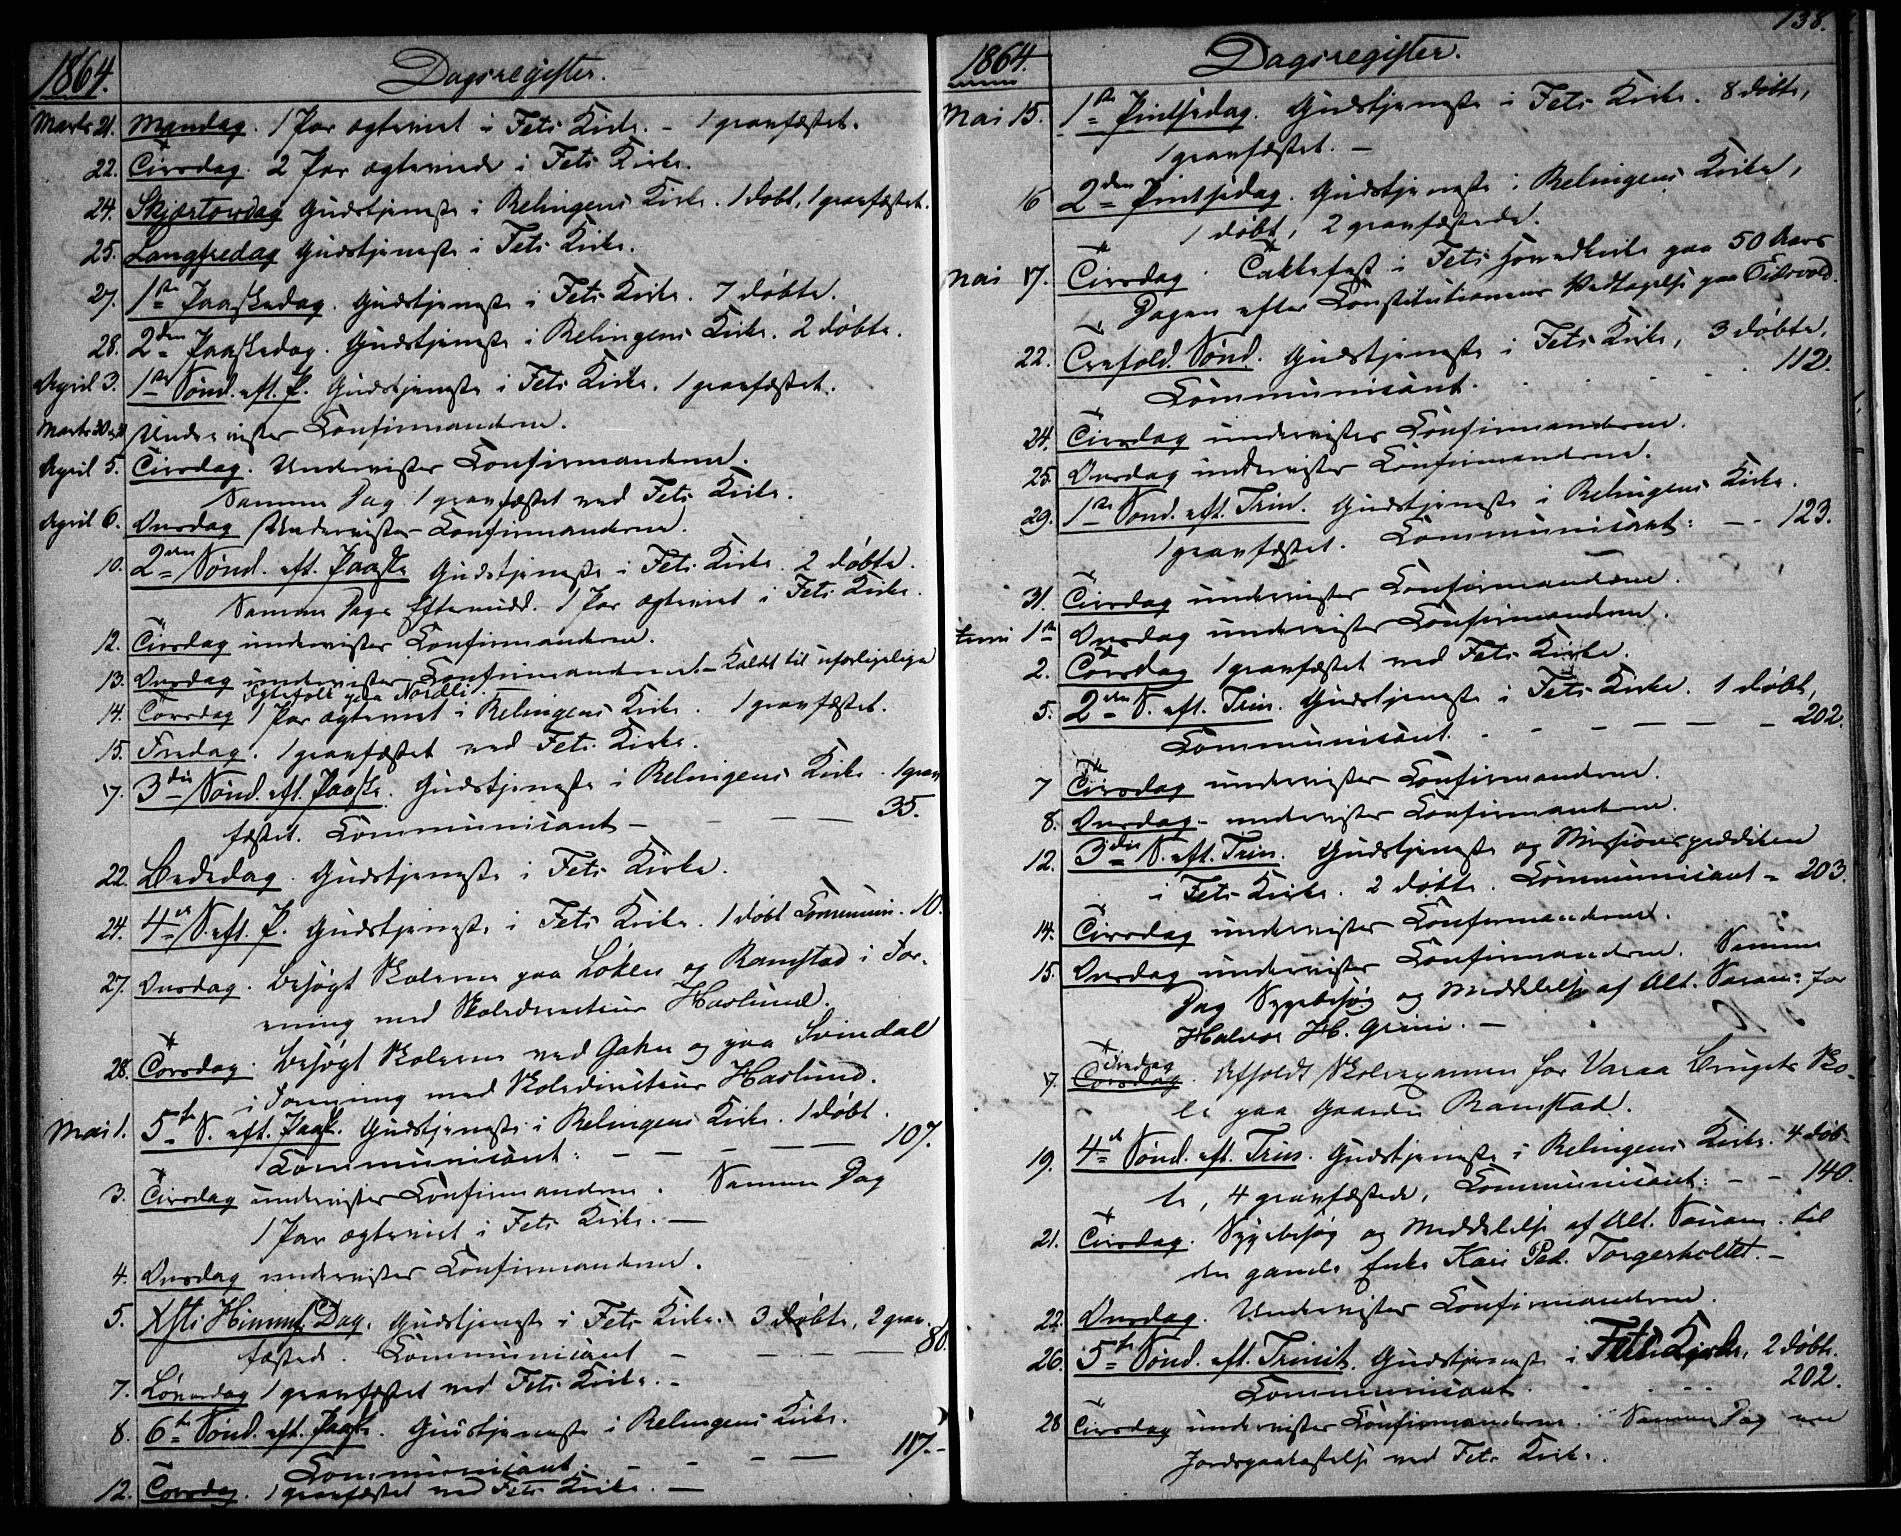 1864. Dagsregister.
Marts 21. Mandag. 1 Par ægteviet i Fets Kirke. – 1 gravfæstet.
22. Tirsdag. 2 Par ægteviede i Fets Kirke.
24. Skjærtorsdag Gudstjeneste i Relingens Kirke. 1 døbt, 1 gravfæstet.
25. Langfredag Gudstjeneste i Fets Kirke.
27. 1ste Paaskedag. Gudstjeneste i Fets Kirke. 7 døbte.
28. 2den Paaskedag. Gudstjeneste i Relingens Kirke. 2 døbte.
April 3. 1ste Sønd. eft. P. Gudstjeneste i Fets Kirke. 1 gravfæstet.
Marts 30 og 31 Undervister Confirmanderne.
April 5. Tirsdag. Undervister Confirmanderne.
Samme Dag 1 gravfæstet ved Fets Kirke.
April 6. Onsdag Undervister Confirmanderne.
10. 2den Sønd. eft. Paaske Gudstjeneste i Fets Kirke. 2 døbte.
Samme Dags Eftermidd. 1 Par ægteviet i Fets Kirke.
12. Tirsdag undervister Confirmanderne.
13. Onsdag undervister Confirmanderne – Kaldt til uforligelige
Ægtefolk paa Nordli.
14. Torsdag 1 Par ægteviet i Relingens Kirke. 1 gravfæstet.
15. Fredag. 1 gravfæstet ved Fets Kirke.
17. 3die Sønd. eft. Paaske. Gudstjeneste i Relingens Kirke. 1 grav
fæstet. Communicant – – – – 35.
22. Bededag. Gudstjeneste i Fets Kirke.
24. 4de S. eft. P. Gudstjeneste i Fets Kirke. 1 døbt Communi. 10.
27. Onsdag. Besøgt Skolerne paa Løken og Ramstad i For-
ening med Skoledirecteur Haslund.
28. Torsdag. Besøgt Skolerne ved Gaken og paa Svindal
i Forening med Skoledirecteur Haslund.
Mai 1. 5te S. eft. Paask. Gudstjeneste i Relingens Kirke. 1 døbt.
Communicant: – – – – 107.
3. Tirsdag undervister Confirmanderne. Samme Dag
1 Par ægteviet i Fets Kirke. –
4. Onsdag undervister Confirmanderne.
5. Xsti Himmf. Dag. Gudstjeneste i Fets Kirke. 3 døbte, 2 grav-
fæstede. Communicant – – – – 80.
7. Løverdag 1 gravfæstet ved Fets Kirke. –
8. 6te Sønd. eft. Paask. Gudstjeneste i Relingens Kirke.
Communicant: – – – – 117. –
12. Torsdag. 1 gravfæstet ved Fets Kirke. –
138.
1864. Dagsregister.
Mai 15. 1ste Pintsedag. Gudstjeneste i Fets Kirke. 8 døbte,
1 gravfæstet. –
16 2den Pintsedag. Gudstjeneste i Relingens Kirke,
1 døbt, 2 gravfæstede.
Mai 17. Tirsdag. Takkefest i Fets Hovedkirke paa 50 Aars
Dagen efter Constitutionens Vedtagelse paa Eidsvold.
22. Trefold. Sønd. Gudstjeneste i Fets Kirke, 3 døbte.
Communicant. 112.
24. Tirsdag undervister Confirmanderne.
25. Onsdag undervister Confirmanderne.
29. 1ste Sønd. eft. Trin. Gudstjeneste i Relingens Kirke.
1 gravfæstet. Communicant: – – 123.
31. Tirsdag undervister Confirmanderne.
Juni 1ste Onsdag undervister Confirmanderne.
2. Torsdag 1 gravfæstet ved Fets Kirke.
5. 2den S. eft. Trin. Gudstjeneste i Fets Kirke. 1 døbt,
Communicant – – – – – 202.
7 Tirsdag undervister Confirmanderne.
8. Onsdag – undervister Confirmanderne.
12. 3die S. eft. Trin. Gudstjeneste og Missionsprædiken
i Fets Kirke. 2 døbte. Communicant – 203.
14. Tirsdag undervister Confirmanderne.
15. Onsdag undervister Confirmanderne. Samme
Dag Sygebesøg og Meddelelse af Alt. Saram: for
Halvor H. Grini. –
Fredag
17. Torsdag. Afholdt Skoleexamen for Varaa Brugets Sko-
le paa Gaarden Ramstad.
19. 4de Sønd. eft. Trin. Gudstjeneste i Relingens Kirke. 4 døb-
te, 4 gravfæstede, Communicant: – – 140.
21. Tirsdag. Sygebesøg og Meddelelse af Alt. Saram. til
den gamle Enke Kari Ped. Torgerholtet. –
22. Onsdag. Undervister Confirmanderne.
26. 5te Sønd. eft. Trinit. Gudstjeneste i Fets Kjrke, 2 døbte.
Communicant. 202.
28 Tirsdag undervister Confirmanderne. Samme Dag en
Jordspaakastelse ved Fets Kirke.